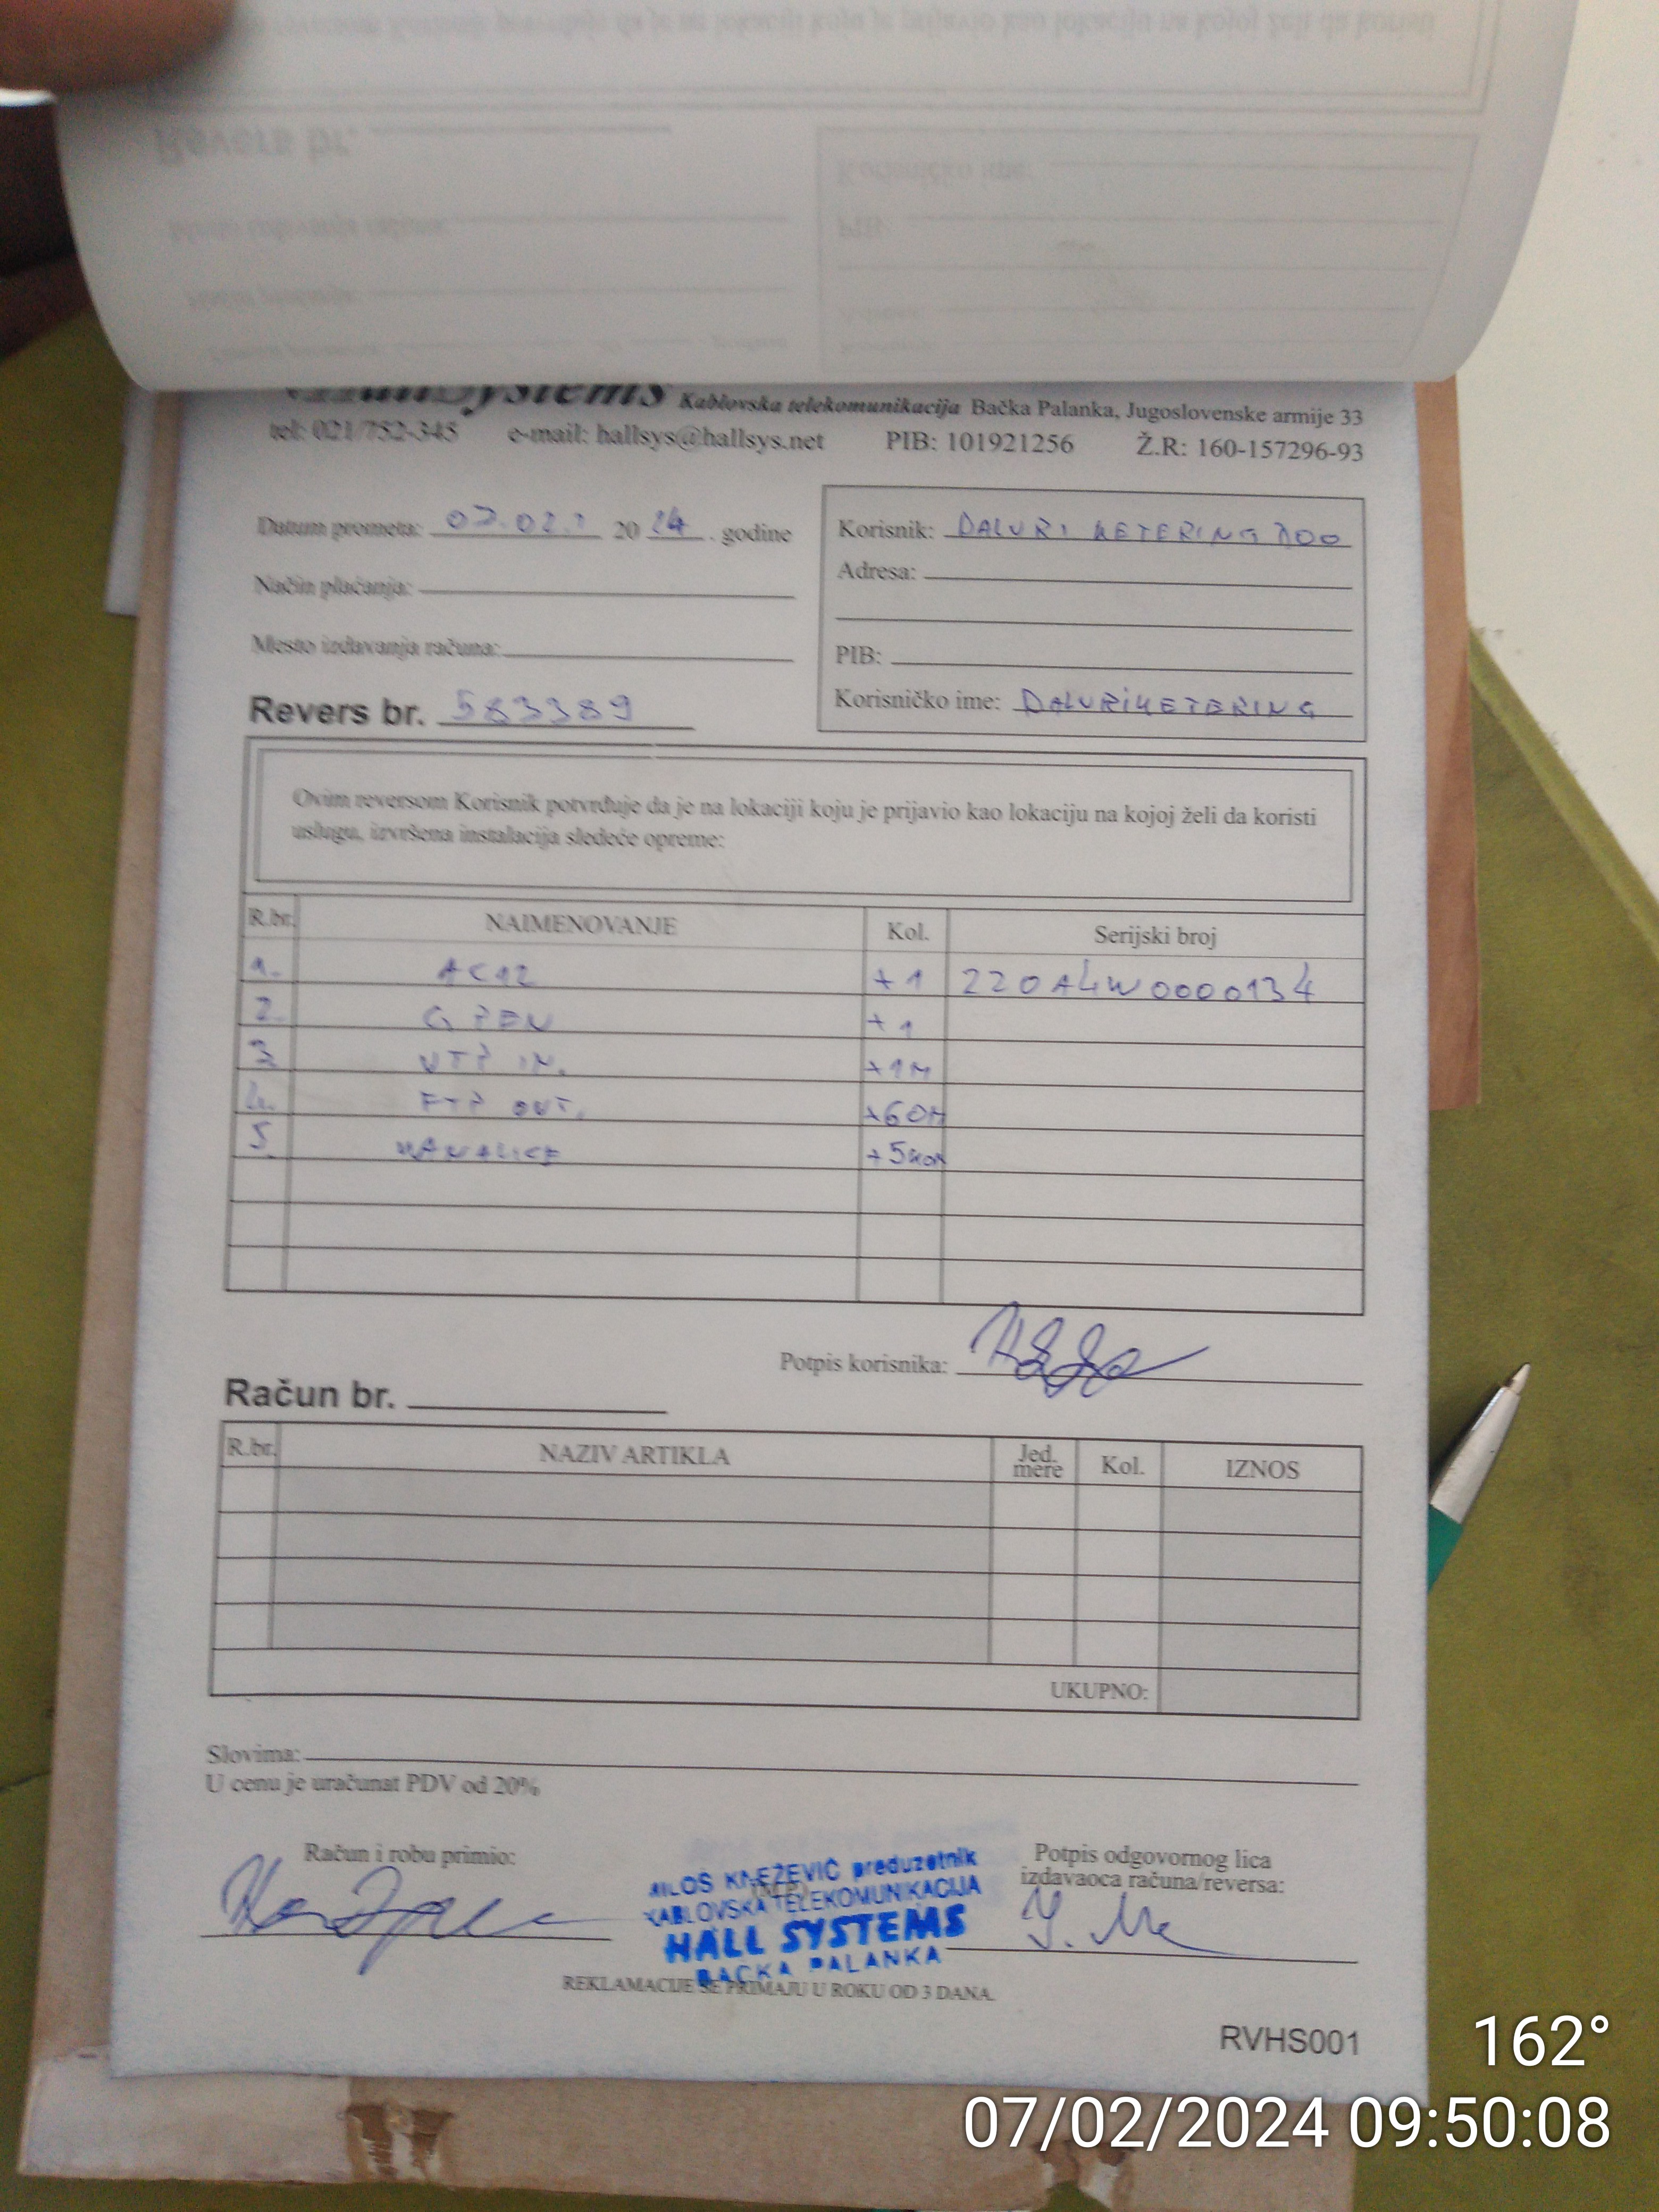 HallSystems Kablovska telekomunikacija Bačka Palanka, Jugoslovenske armije 33
tel: 021/752-345 e-mail: hallsys@hallsys.net PIB: 101921256 Ž.R: 160-157296-93
Datum prometa: 07.02. 2024. godine
Način plaćanja:
Mesto izdavanja računa:
Revers br. 583389
Korisnik: DALURI KETERING DOO
Adresa:
PIB:
Korisničko ime: DALURIKETERING
Ovim reversom Korisnik potvrđuje da je na lokaciji koju je prijavio kao lokaciju na kojoj želi da koristi
uslugu, izvršena instalacija sledeće opreme:
R.br. NAIMENOVANJE Kol. Serijski broj
1. AC12 +1 220A4W0000134
2. G PEN +1
3 UTP IN. +1M
4. FTP OUT. +60M
5. KANALICE +5KOM
Potpis korisnika:
Račun br.
R.br. NAZIV ARTIKLA Jed. mere Kol. IZNOS
UKUPNO:
Slovima:
U cenu je uračunat PDV od 20%
Račun i robu primio:
MILOŠ KNEŽEVIĆ preduzetnik
KABLOVSKA TELEKOMUNIKACIJA
HALL SYSTEMS
BAČKA PALANKA
Potpis odgovornog lica
izdavaoca računa/reversa:
REKLAMACIJE SE PRIMAJU U ROKU OD 3 DANA.
RVHS001
162°
07/02/2024 09:50:08